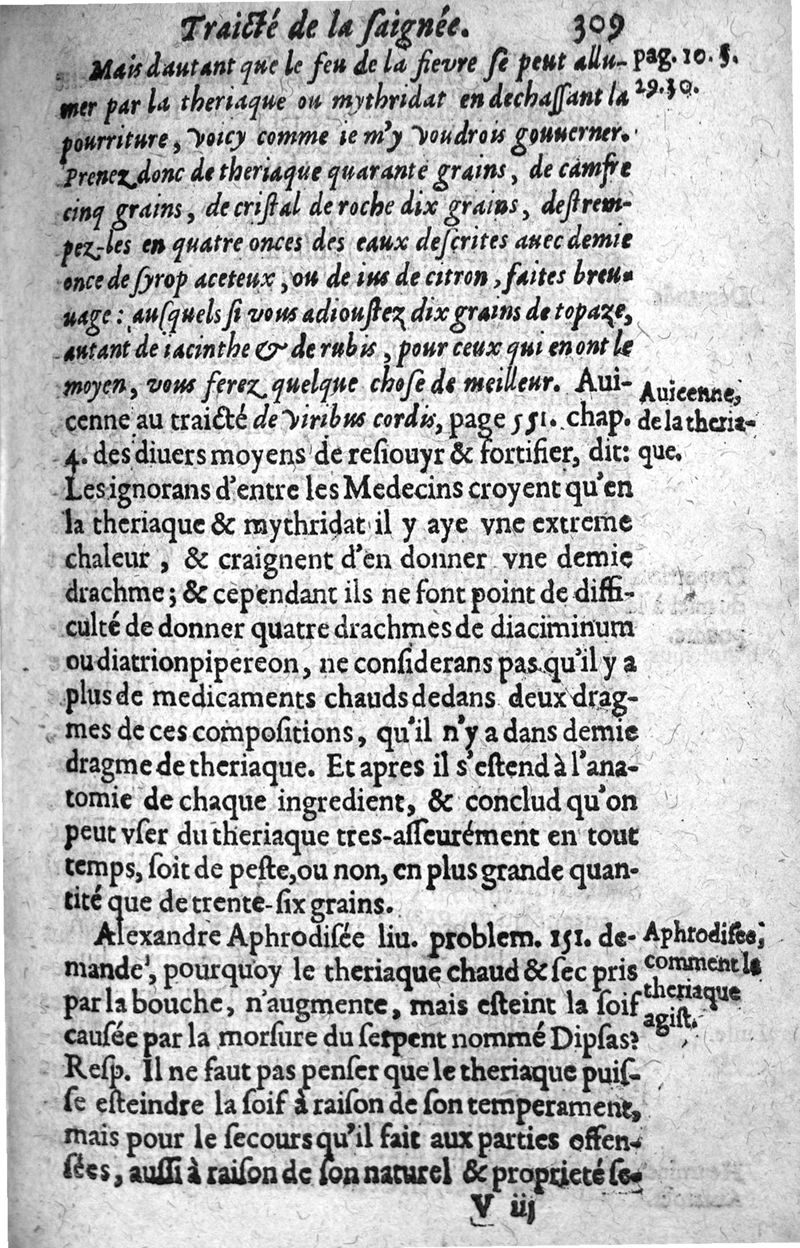 Traicté de la ſaignée. 309
Mais dautant que le feu de la fievre ſe peut allu-
mer par la theriaque ou mythridat en dechaſſant la
pourriture, voicy comme ie m'y voudrois gouuerner.
Prenez donc de theriaque quarante grains, de camfre
cinq grains, de criſtal de roche dix grains, deſtrem-
pez-les en quatre onces des eaux deſcrites auec demie
once de ſyrop aceteux, ou de ius de citron, faites breu-
uage: auſquels ſi vous adiouſtez dix grains de topaze,
autant de iacinthe & de rubis, pour ceux qui en ont le
moyen, vous ferez quelque choſe de meilleur. Aui-
cenne au traicté de viribus cordis, page 551. chap.
4. des diuers moyens de reſiouyr & fortifier, dit:
Les ignorans d'entre les Medecins croyent qu'en
la theriaque & mythridat il y aye vne extreme
chaleur, & craignent d'en donner vne demie
drachme; & cependant ils ne font point de diffi-
culté de donner quatre drachmes de diaciminum
ou diatrionpipereon, ne conſiderans pas qu'il y a
plus de medicaments chauds dedans deux drag-
mes de ces compoſitions, qu'il n'y a dans demie
dragme de theriaque. Et apres il s'eſtend à l'ana-
tomie de chaque ingredient, & conclud qu'on
peut vſer du theriaque tres-aſſeurément en tout
temps, ſoit de peſte, ou non, en plus grande quan-
tité que de trente-ſix grains.
Alexandre Aphrodiſée liu. problem. 151. de-
mande, pourquoy le theriaque chaud & ſec pris
par la bouche, n'augmente, mais eſteint la ſoif
cauſée par la morſure du ſerpent nommé Dipſas?
Reſp. Il ne faut pas penſer que le theriaque puiſ-
ſe eſteindre la ſoif à raiſon de ſon temperament,
mais pour le ſecours qu'il fait aux parties offen-
ſées, auſſi à raiſon de ſon naturel & proprieté ſe-
V iij
pag. 10. 5.
29.30.
Auicenne,
de la theria-
que.
Aphrodiſee,
comment le
theriaque
agiſt.